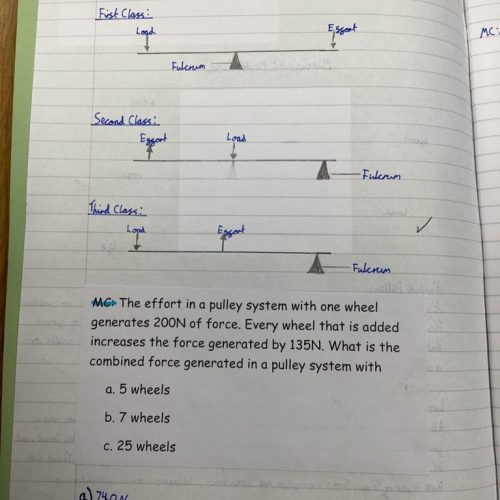 First Class:
Load Effort
Fulcrum
MC:
Second Class:
Effort Load
Fulcrum
Third Class:
Load Effort
Fulcrum
MC: The effort in a pulley system with one wheel
generates 200N of force. Every wheel that is added
increases the force generated by 135N. What is the
combined force generated in a pulley system with
a. 5 wheels
b. 7 wheels
c. 25 wheels
a) 740N